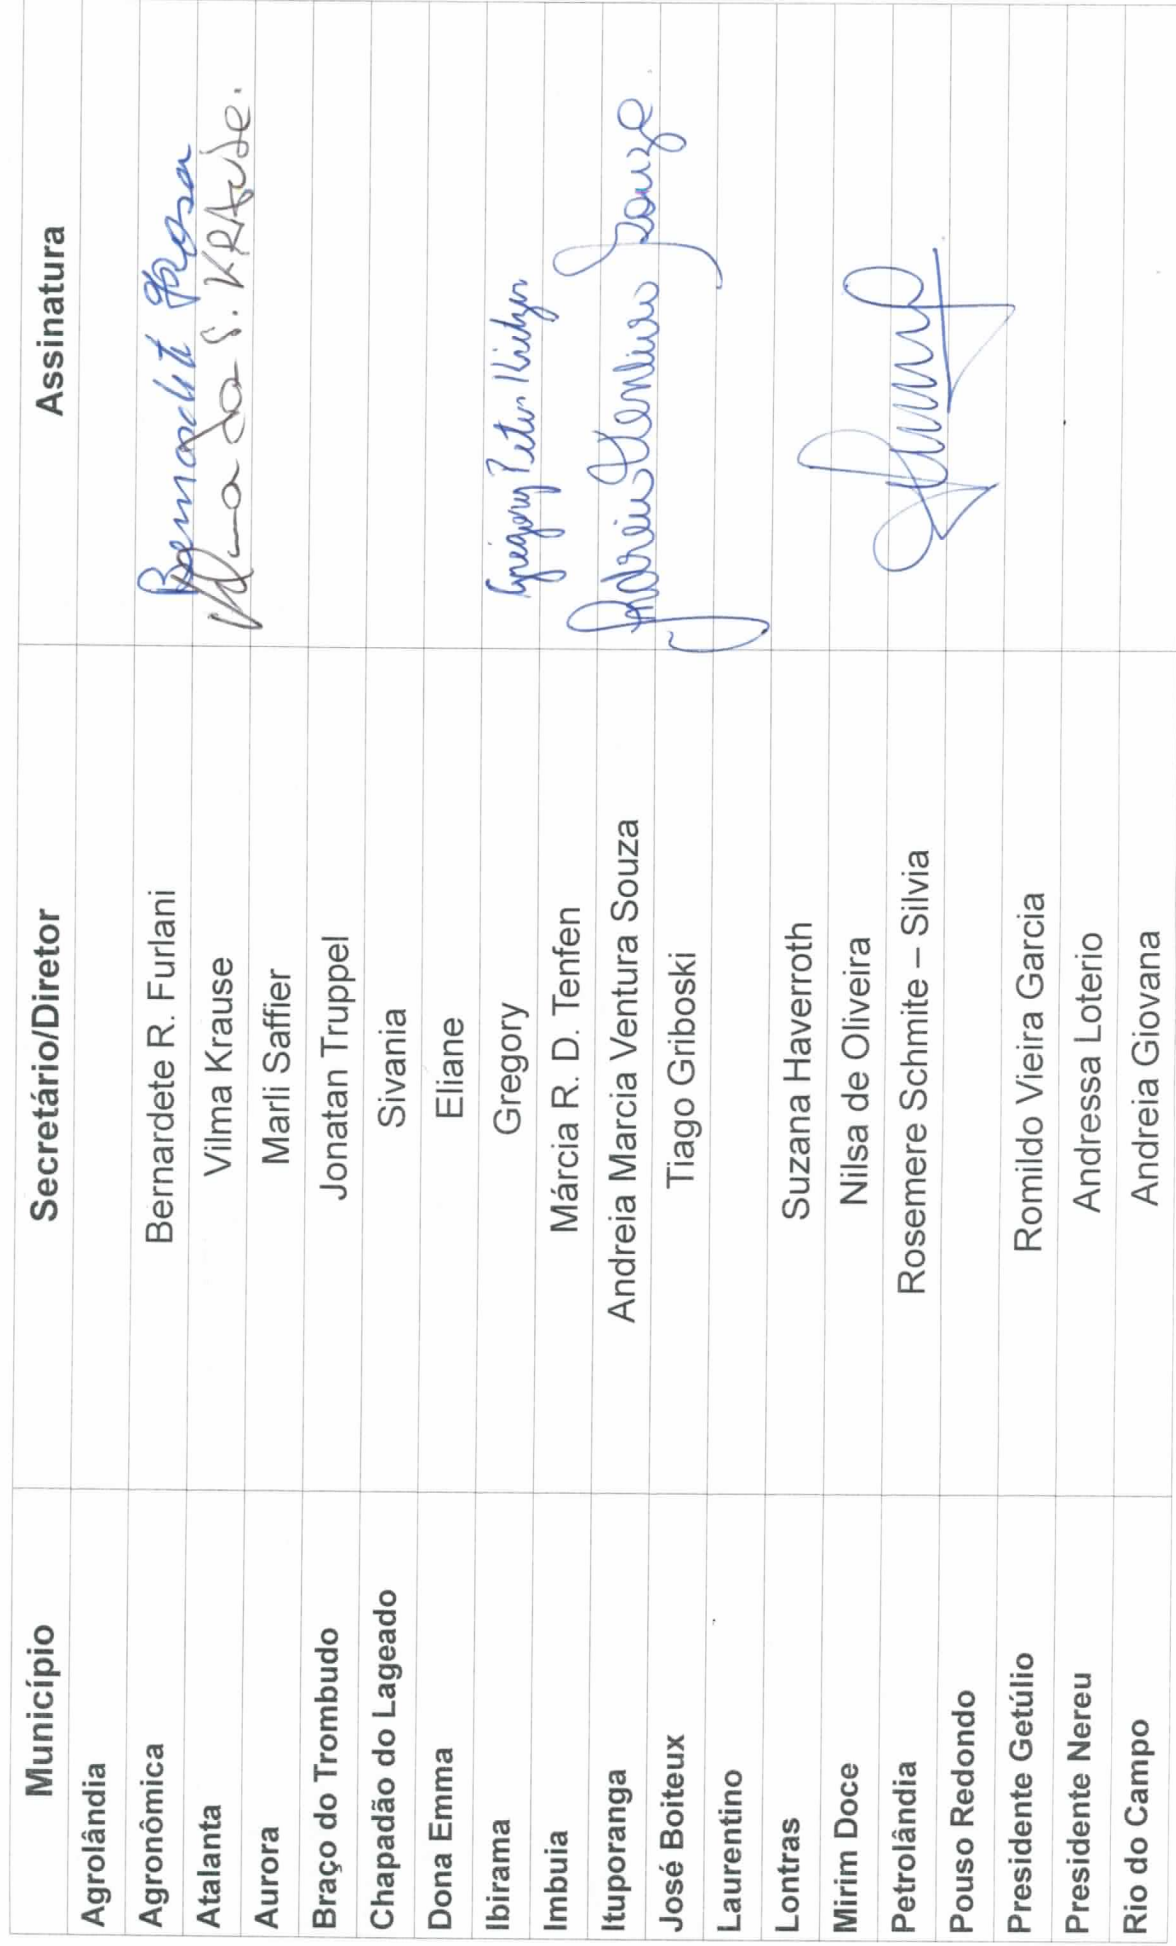 Município Secretário/Diretor Assinatura
Agrolândia
Agronômica Bernardete R. Furlani
Atalanta Vilma Krause KRAUSE.
Aurora Marli Saffier
Braço do Trombudo Jonatan Truppel
Chapadão do Lageado Sivania
Dona Emma Eliane
Ibirama Gregory Gregory Peter
Imbuia Márcia R. D. Tenfen
Ituporanga Andreia Marcia Ventura Souza Andreia Souza
José Boiteux Tiago Griboski
Laurentino
Lontras Suzana Haverroth
Mirim Doce Nilsa de Oliveira
Petrolândia Rosemere Schmite – Silvia
Pouso Redondo
Presidente Getúlio Romildo Vieira Garcia
Presidente Nereu Andressa Loterio
Rio do Campo Andreia Giovana